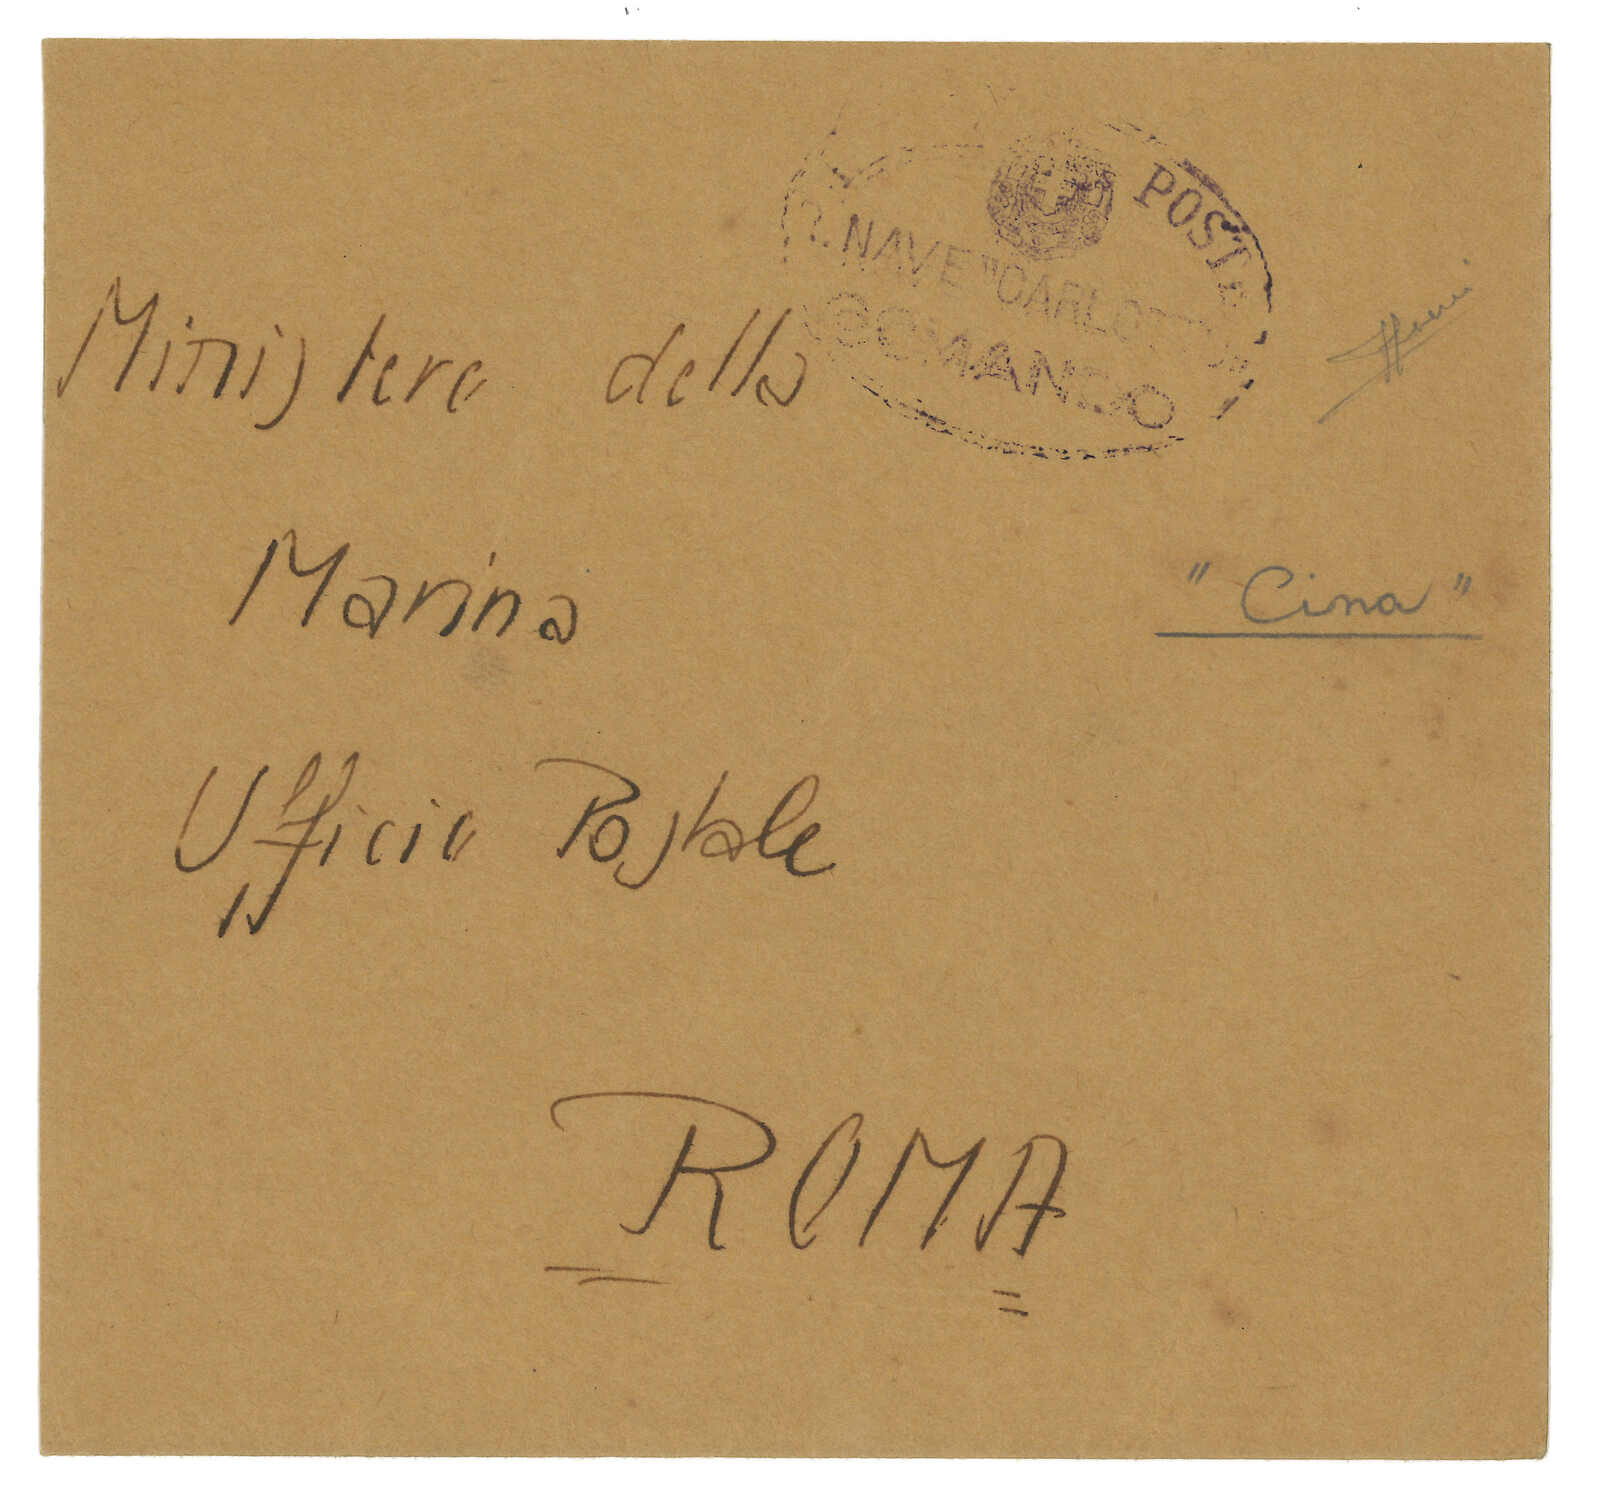 POSTE
R. NAVE "CARLOTTO"
COMANDO
Ministero della
Marina
"Cina"
Ufficio Postale
ROMA